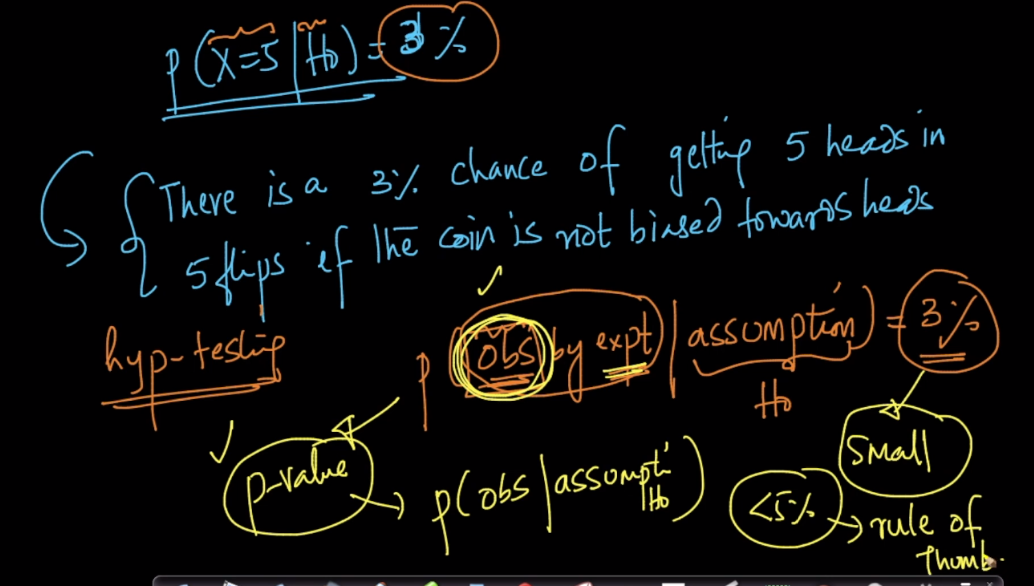 P(X=5|H0) = 3%
There is a 3% chance of getting 5 heads in
5 flips if the coin is not biased towards heads
hyp-testing
P(obs by expt | assumption) = 3%
H0
small
p-value → p(obs | assumpti H0)
<5% → rule of
thumb